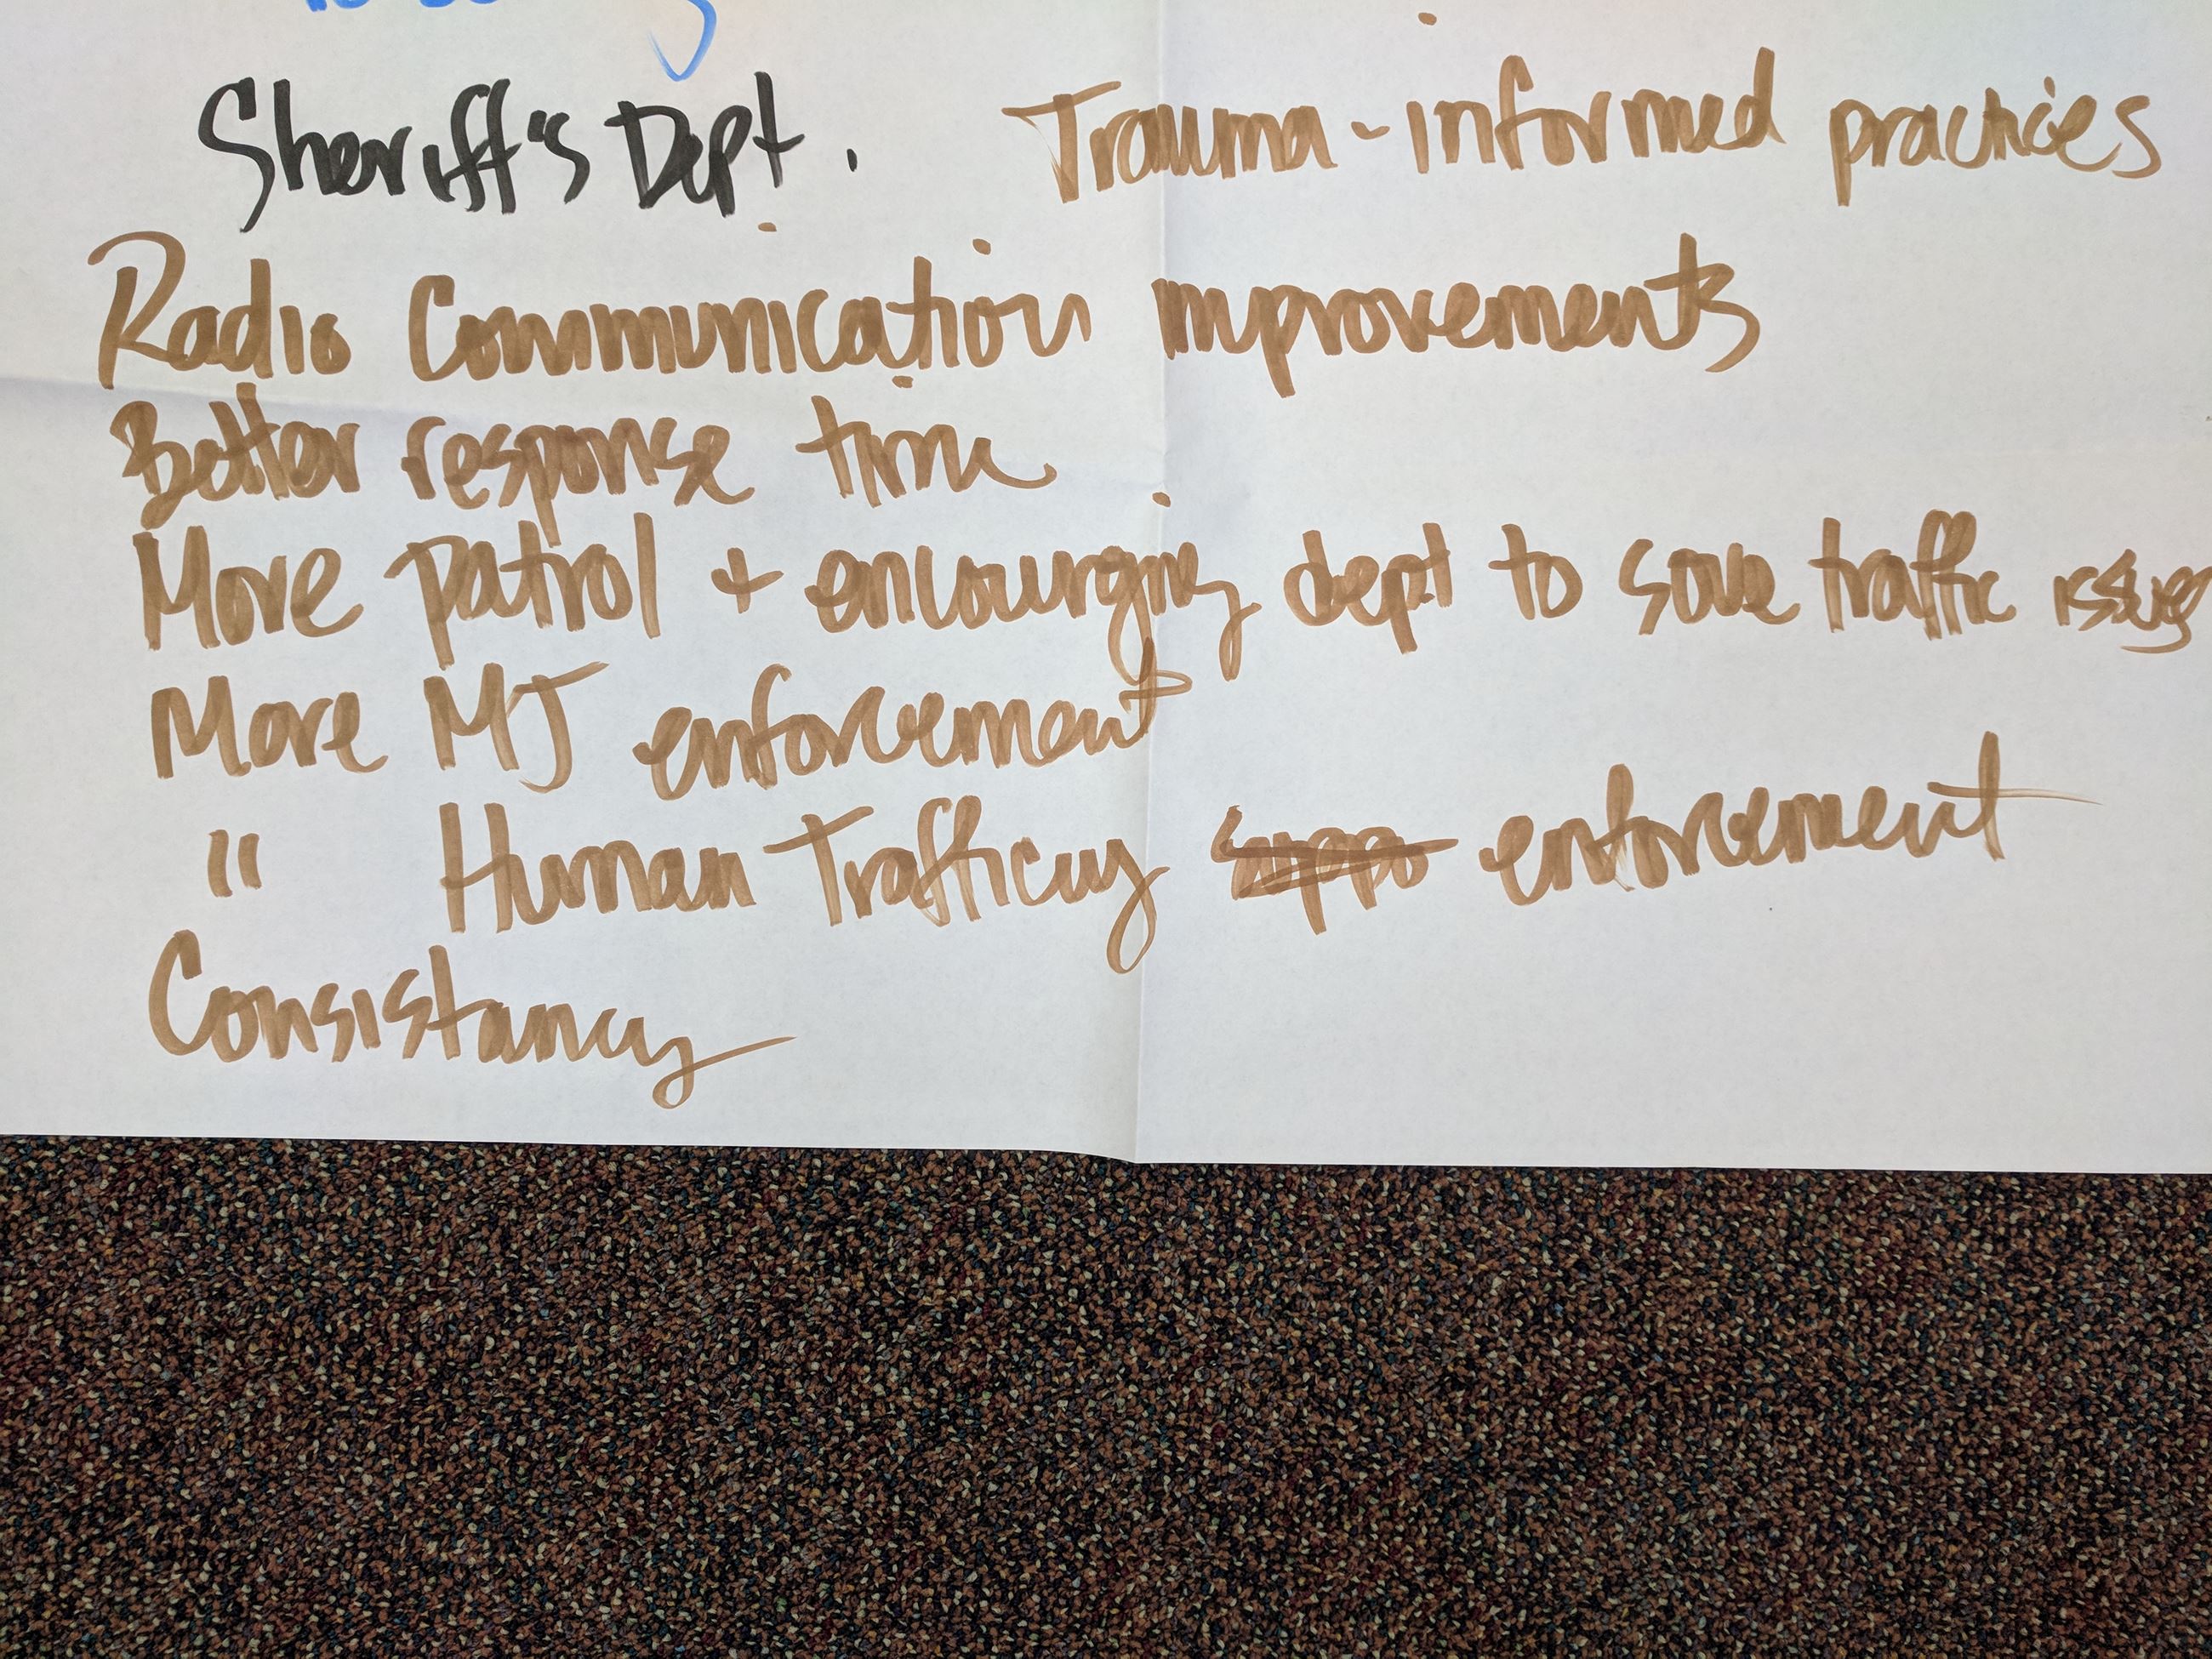 Sheriff's Dept. Trauma-informed practices
Radio Communication improvements
Better response time
More patrol + encourging dept to solve traffic issues
More MJ enforcement
" Human Trafficing enforcement
Consistancy